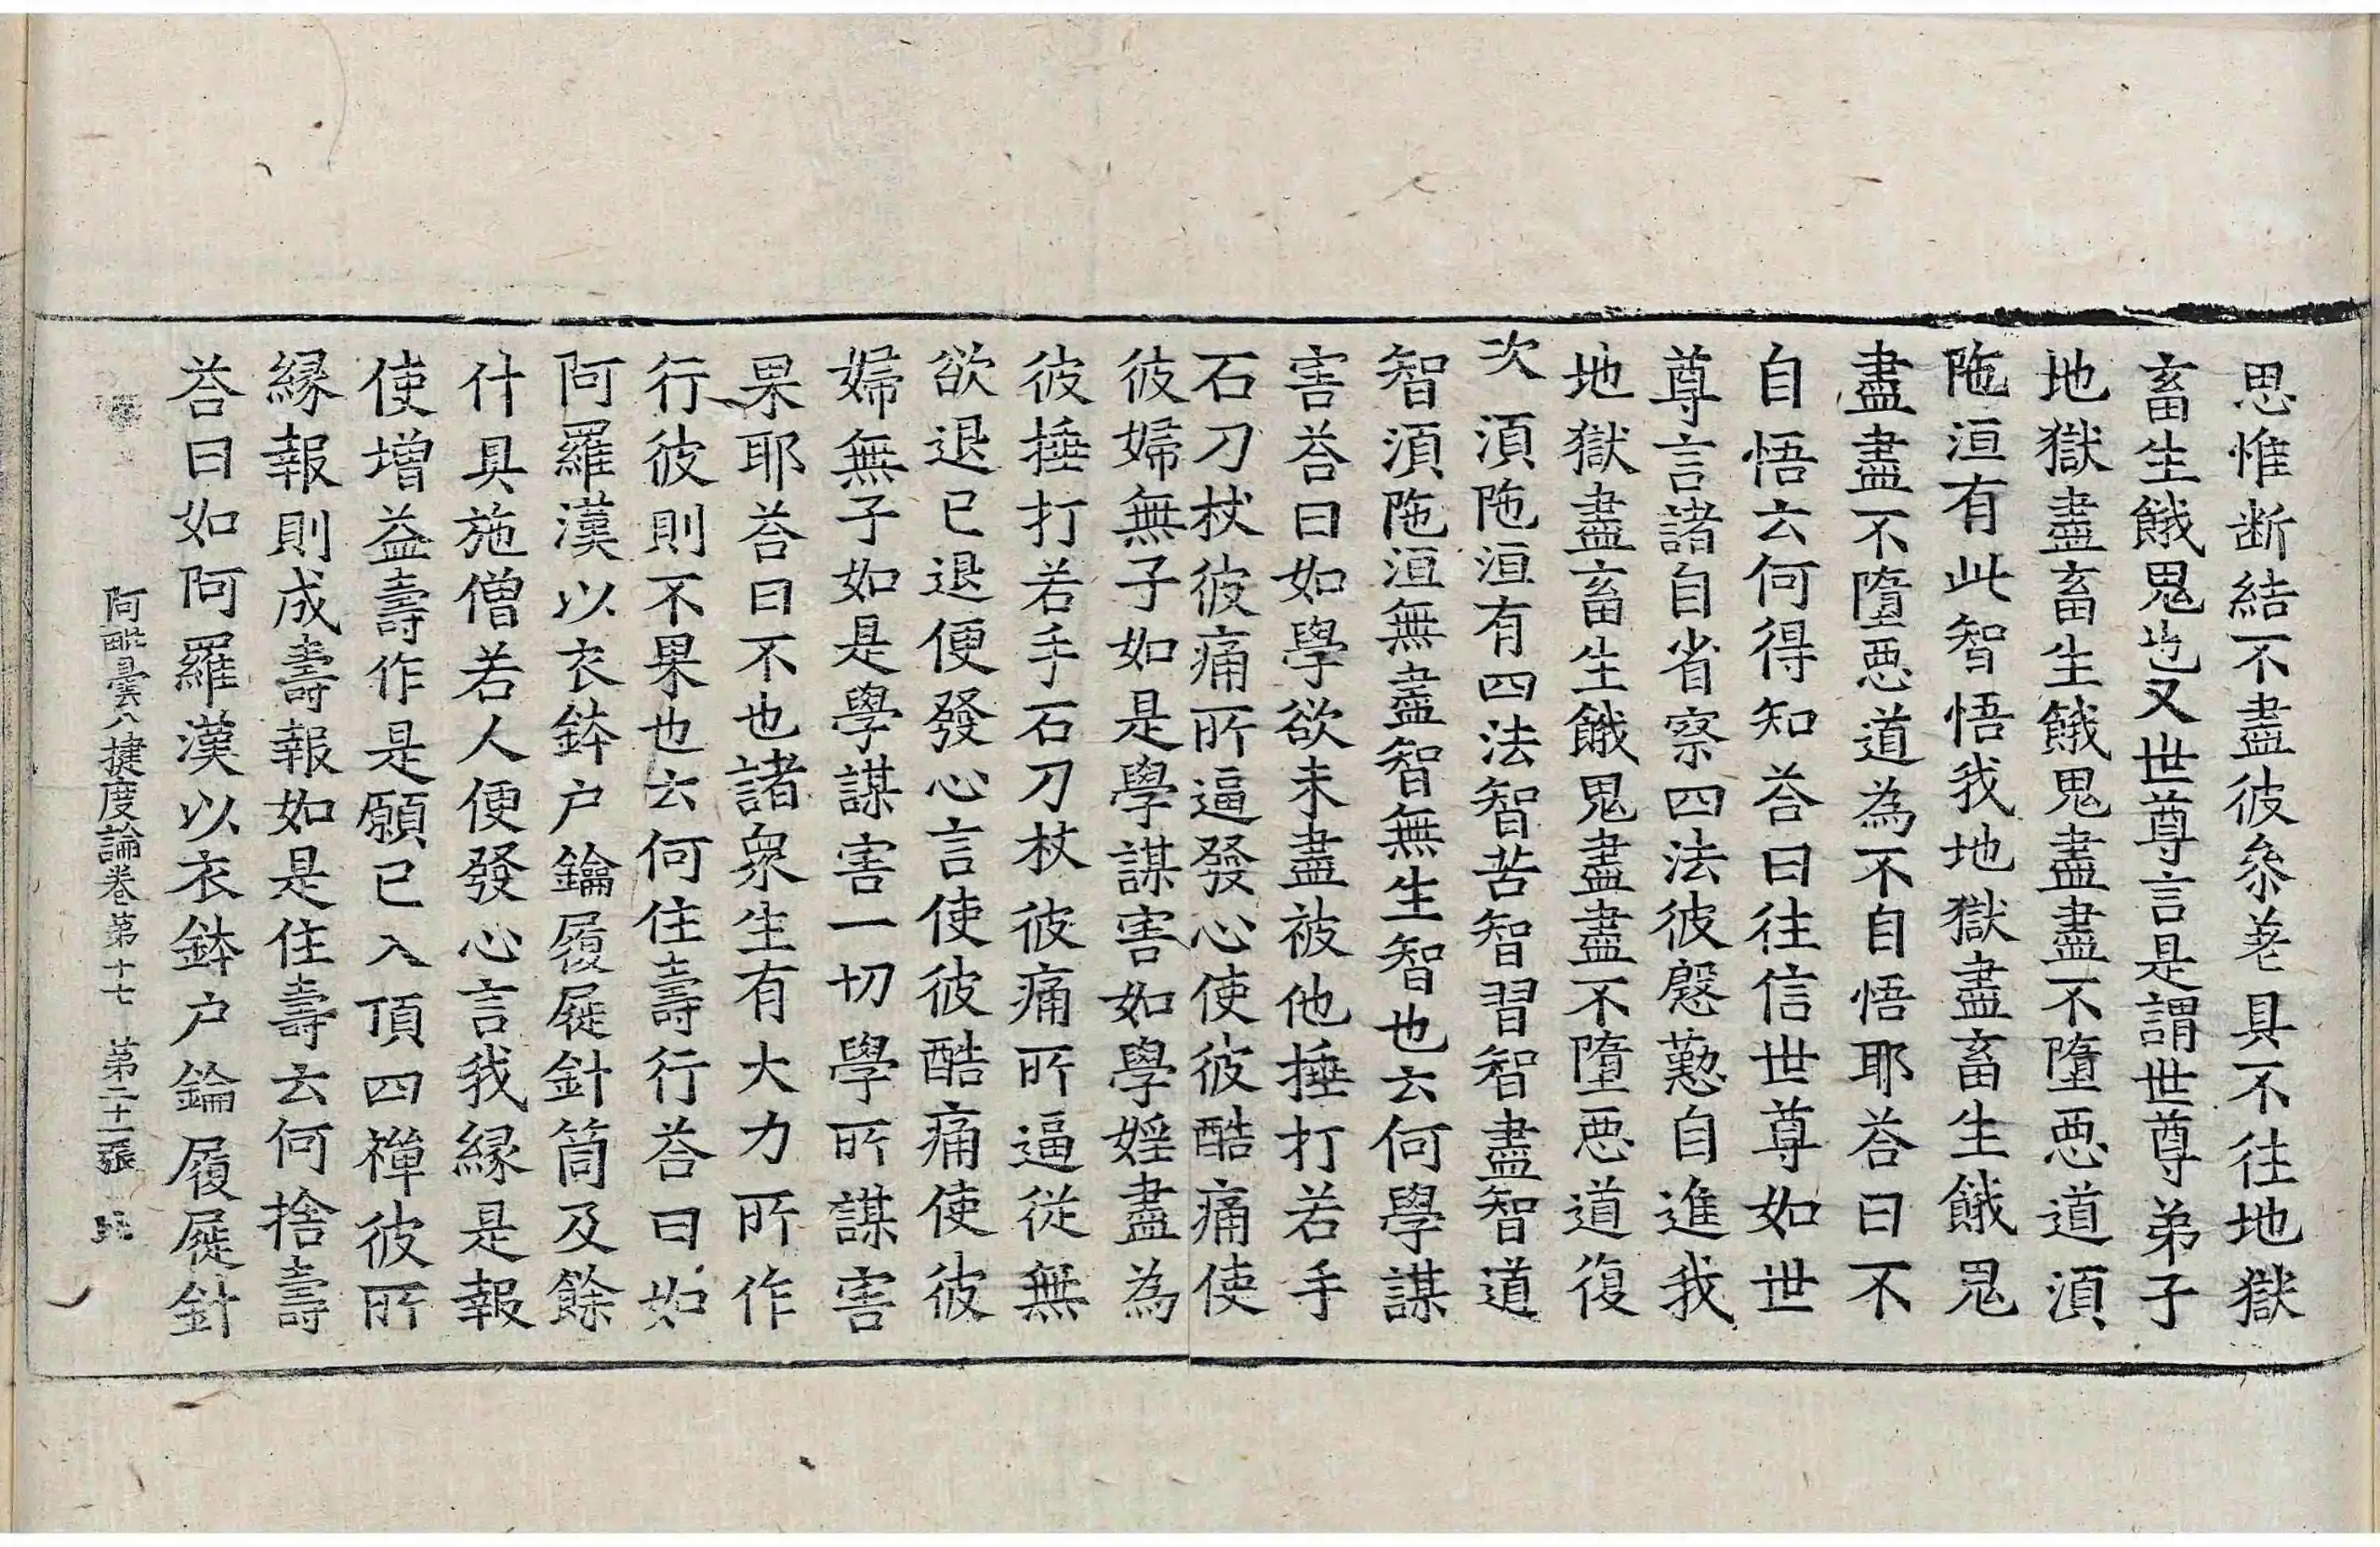 思惟断結不盡彼叅差具不往地獄
畜生餓鬼也又世尊言是謂世尊弟子
地獄盡畜生餓鬼盡盡不墮恶道湏
陁洹有此智悟我地獄盡畜生餓鬼
盡盡不墮恶道為不自悟耶荅曰不
自悟云何得知荅曰往信世尊如世
尊言諸自省察四法彼慇懃自進我
地獄盡畜生餓鬼盡盡不墮恶道復
次湏陁洹有四法智苦智習智盡智道
智湏陁洹無盡智無生智也云何學謀
害荅曰如學欲未盡被他捶打若手
石刀杖彼痛所逼發心使彼酷痛使
彼婦無子如是學謀害如學婬盡為
彼捶打若手石刀杖彼痛所逼從無
欲退已退便發心言使彼酷痛使彼
婦無子如是學謀害一切學所謀害
果耶荅曰不也諸衆生有大力所作
行彼則不果也云何住壽行荅曰如
阿羅漢以衣鉢户鑰履屣針筒及餘
什具施僧若人便發心言我緣是報
使增益壽作是願已入頂四禅彼所
緣報則成壽報如是住壽云何捨壽
荅曰如阿羅漢以衣鉢户鑰履屣針
阿毗曇八揵度論卷第十七 第二十一張